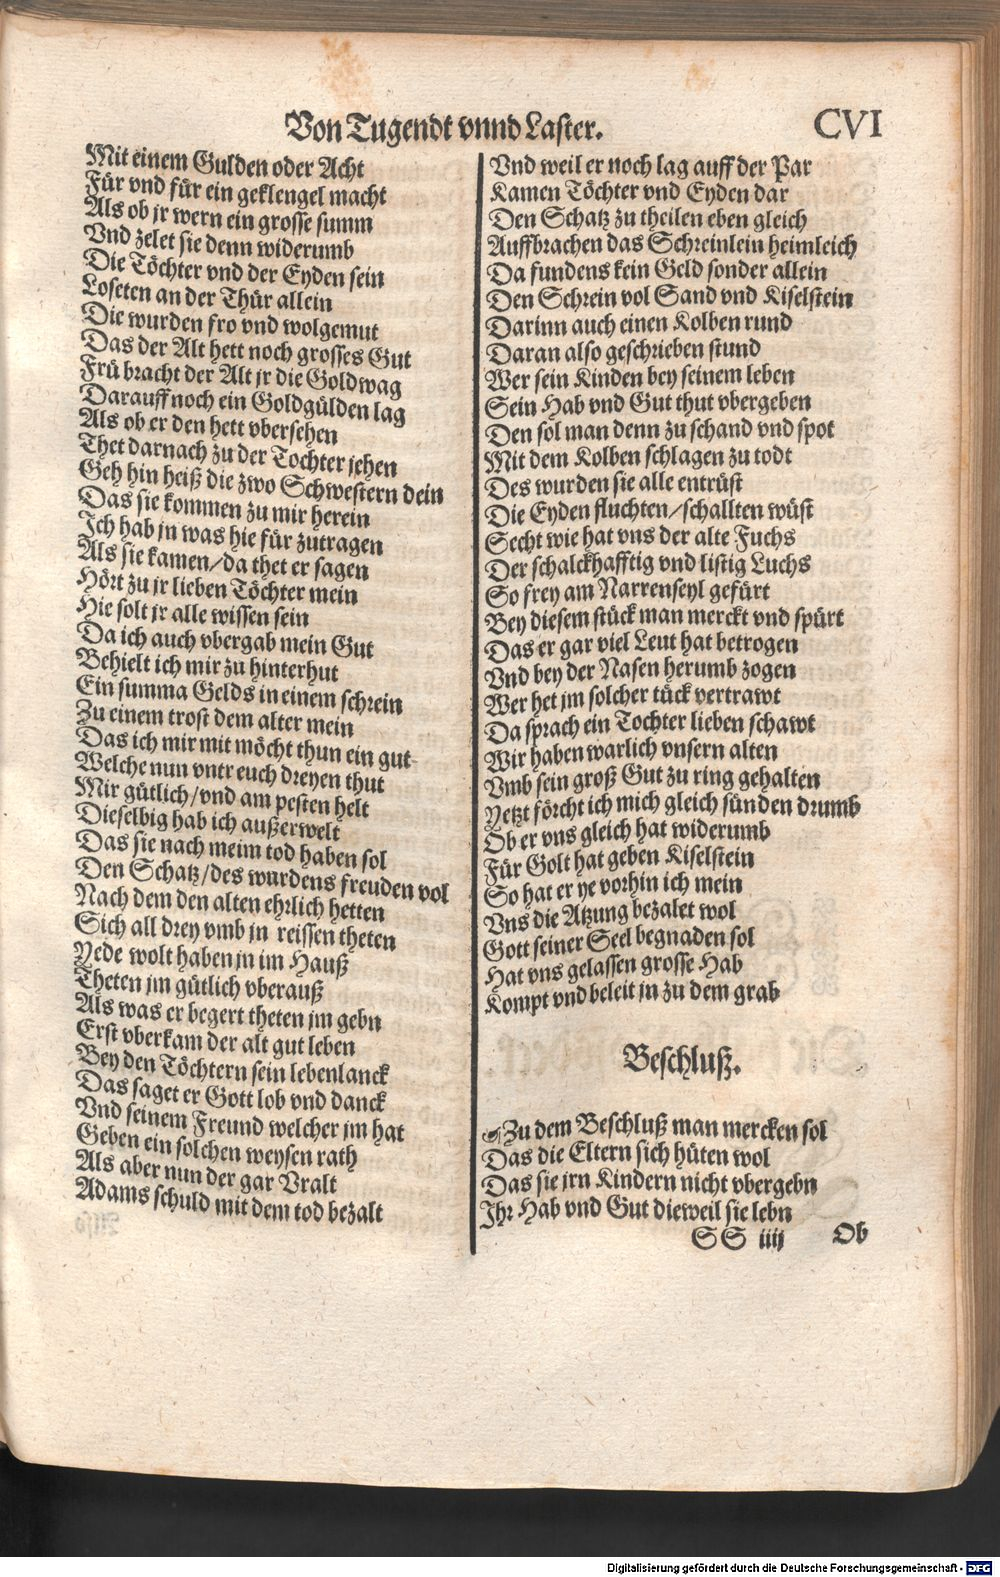 Von Tugendt vnnd Laster.
CVI
Mit einem Gulden oder Acht
Für vnd für ein geklengel macht
Als ob jr wern ein grosse summ
Vnd zelet sie denn widerumb
Die Töchter vnd der Eyden sein
Loseten an der Thür allein
Die wurden fro vnd wolgemut
Das der Alt hett noch grosses Gut
Frü bracht der Alt jr die Goldwag
Darauff noch ein Goldgülden lag
Als ob er den hett vbersehen
Thet darnach zu der Tochter jehen
Geh hin heiß die zwo Schwestern dein
Das sie kommen zu mir herein
Ich hab jn was hie für zutragen
Als sie kamen/da thet er sagen
Hört zu jr lieben Töchter mein
Hie solt jr alle wissen sein
Da ich auch vbergab mein Gut
Behielt ich mir zu hinterhut
Ein summa Gelds in einem schrein
Zu einem trost dem alter mein
Das ich mir mit möcht thun ein gut
Welche nun vntr euch dreyen thut
Mir gütlich/vnd am pesten helt
Dieselbig hab ich außerwelt
Das sie nach meim tod haben sol
Den Schatz/des wurdens freuden vol
Nach dem den alten ehrlich hetten
Sich all drey vmb jn reissen theten
Yede wolt haben jn im Hauß
Theten jm gütlich vberauß
Als was er begert theten jm gebn
Erst vberkam der alt gut leben
Bey den Töchtern sein lebenlanck
Das saget er Gott lob vnd danck
Vnd seinem Freund welcher jm hat
Geben ein solchen weysen rath
Als aber nun der gar Vralt
Adams schuld mit dem tod bezalt
Vnd weil er noch lag auff der Par
Kamen Töchter vnd Eyden dar
Den Schatz zu theilen eben gleich
Auffbrachen das Schreinlein heimleich
Da fundens kein Geld sonder allein
Den Schrein vol Sand vnd Kiselstein
Darinn auch einen Kolben rund
Daran also geschrieben stund
Wer sein Kinden bey seinem leben
Sein Hab vnd Gut thut vbergeben
Den sol man denn zu schand vnd spot
Mit dem Kolben schlagen zu todt
Des wurden sie alle entrüst
Die Eyden fluchten/schallten wüst
Secht wie hat vns der alte Fuchs
Der schalckhafftig vnd listig Luchs
So frey am Narrenseyl gefürt
Bey diesem stück man merckt vnd spürt
Das er gar viel Leut hat betrogen
Vnd bey der Nasen herumb zogen
Wer het jm solcher tück vertrawt
Da sprach ein Tochter lieben schawt
Wir haben warlich vnsern alten
Vmb sein groß Gut zu ring gehalten
Yetzt förcht ich mich gleich sünden drumb
Ob er vns gleich hat widerumb
Für Golt hat geben Kiselstein
So hat er ye vorhin ich mein
Vns die Atzung bezalet wol
Gott seiner Seel begnaden sol
Hat vns gelassen grosse Hab
Kompt vnd beleit jn zu dem grab
Beschluß.
Zu dem Beschluß man mercken sol
Das die Eltern sich hüten wol
Das sie jrn Kindern nicht vbergebn
Ihr Hab vnd Gut dieweil sie lebn
SS iiij
Ob
Digitalisierung gefördert durch die Deutsche Forschungsgemeinschaft - DFG